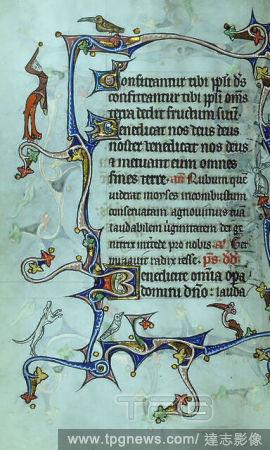 Confiteantur tibi ppli ds
confiteantur tibi ppli oms
terra dedit fructum suu
Benedicat nos deus deus
noster benedicat nos deus
a metuant eum omnes
fines terre. an Rubum que
uiderat moyses incombustum
conseruatam agnouimus tua
laudabilem uginitatem dei ge
nitrix intcede pro nobis. a. Ger
minauit radix iesse. ps. dd.
Benedicite omnia opa
domini dno: lauda
TPG
www.tpgnews.com / 達志影像